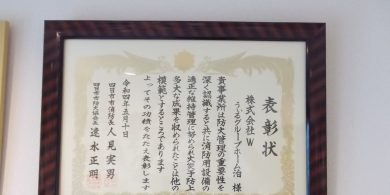 表彰状
株式会社W
うぃるグループホーム治 様
貴事業所は防火管理の重要性を
深く認識すると共に消防用設備の
適正な維持管理に努められ火災予防上
多大な成果を収められたことは他の
模範とするところであります
よってその功績をたたえ表彰します
令和四年五月十日
四日市市消防長 人見実男
四日市市防火協会長 速水正明